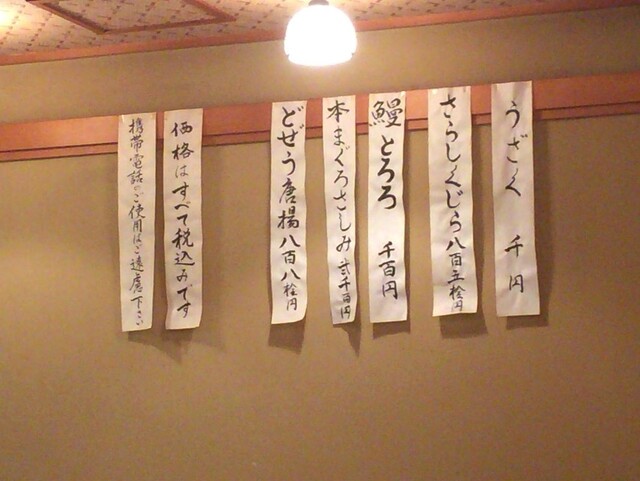 うざく 千円
さらしくじら 八百五拾円
鰻とろろ 千百円
本まぐろさしみ 弐千百円
どぜう唐揚 八百八拾円
価格はすべて税込みです
携帯電話のご使用はご遠慮下さい